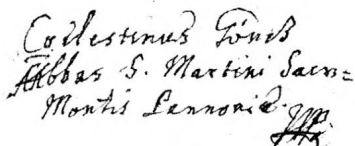 Cœlestinus Göncz
Abbas S. Martini Sacri=
Montis Pannoniæ.